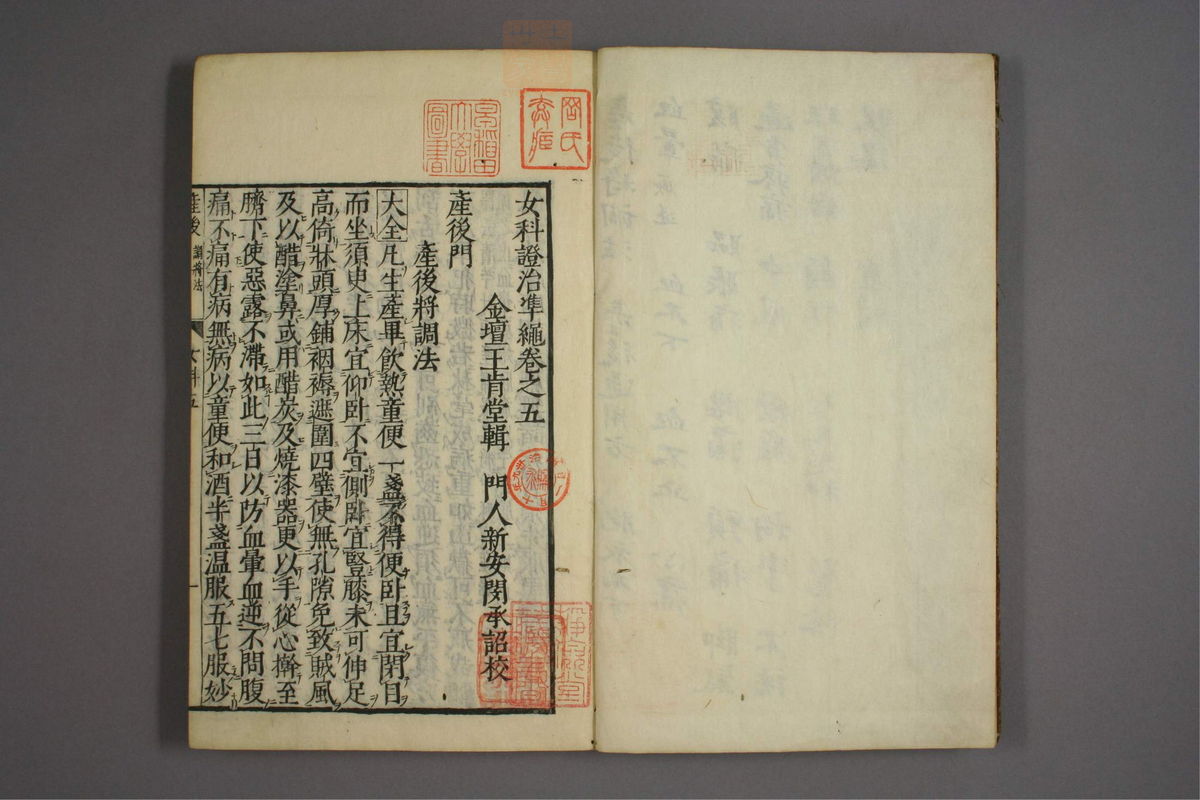 女科證治準繩卷之五
金壇王肯堂輯 門人新安閔承詔校
產後門
產後將調法
大全凡生產畢飲熱童便一盞不得便卧且宜閉目
而坐須臾上床宜仰卧不宜側卧宜豎膝未可伸足
高倚牀頭厚鋪裀褥遮圍四壁使無孔隙免致賊風
及以醋塗鼻或用醋炭及燒漆器更以手從心擀至
臍下使惡露不滯如此三日以防血暈血逆不問腹
痛不痛有病無病以童便和酒半盞温服五七服妙
產後 調將法 女科五 一
早稻田大學圖書